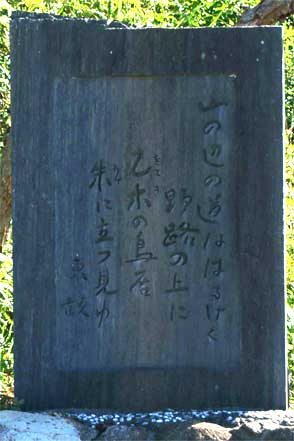 山の辺の道ははるけく
野路の上に
乙木の鳥居
朱に立つ見ゆ
東畝